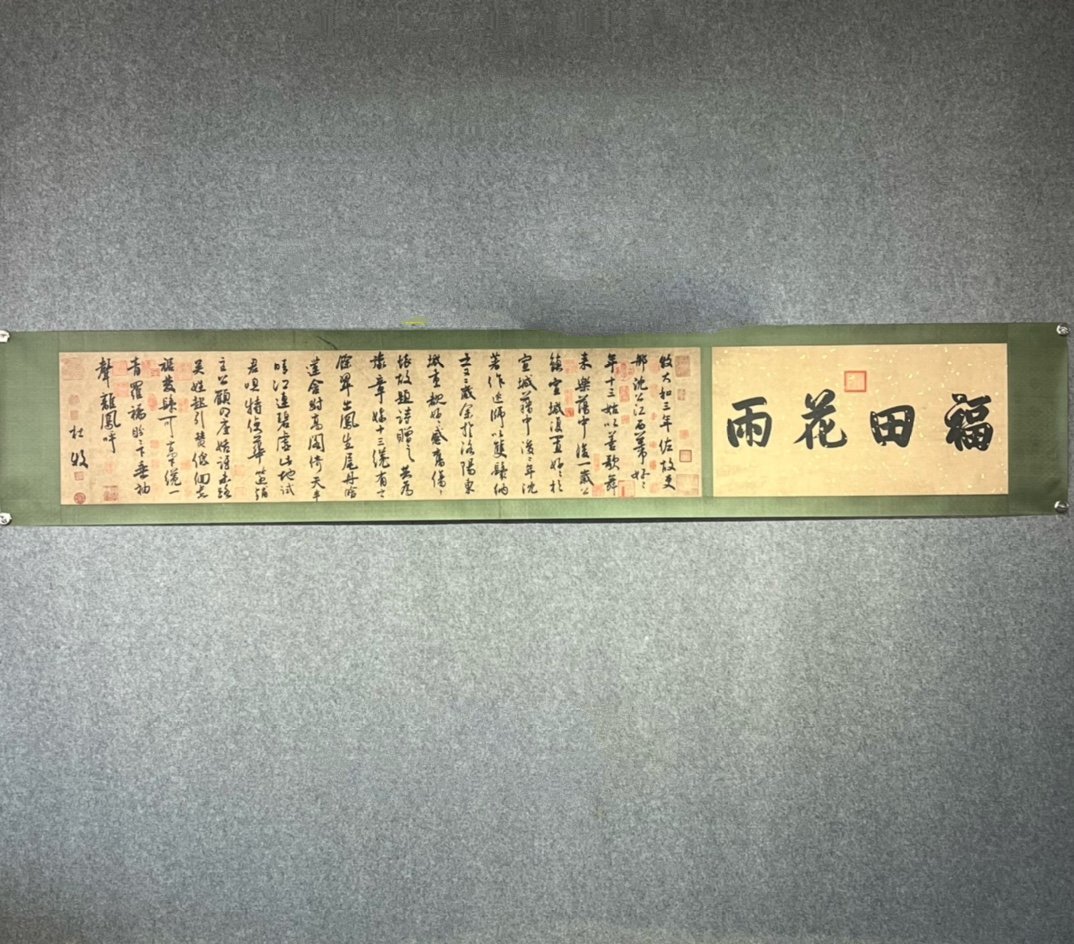 福田花雨
牧大和三年佐故吏
部沈公江西幕好〻
年十三始以善歌舞
来樂籍中後一歲公
鎮宣城復置好〻於
宣城籍中後二年沈
著作述師以雙鬟納
之二歲余於洛陽東
城重覩好〻感舊傷
懷故題詩贈之君為
豫章姝十三纔有
餘翠茁鳳生尾丹臉
蓮含跗高閣倚天半
晴江連碧虛此地試
君唱特使華筵鋪
主公顧四座始訝来踟
吳娃起引贊低佪
裾雙鬟可高下纔
青羅襦盼〻下垂袖一
聲離鳳呼
杜牧